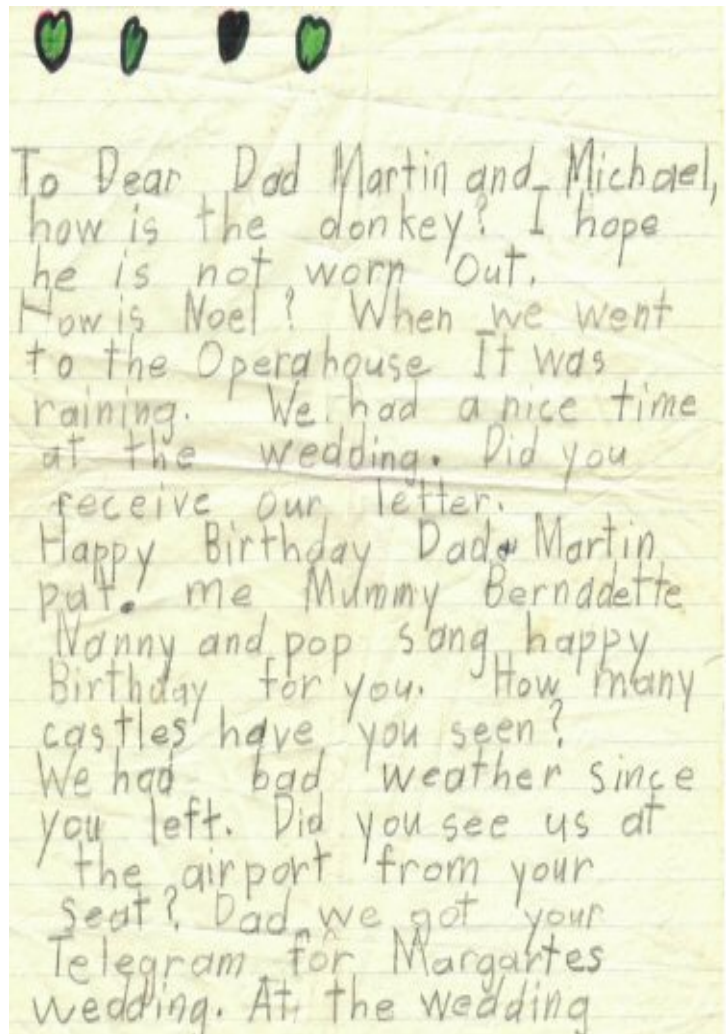 To Dear Dad Martin and Michael,
how is the donkey? I hope
he is not worn out.
How is Noel? When we went
to the Operahouse It was
raining. We had a nice time
at the wedding. Did you
receive our letter.
Happy Birthday Dad. Martin
pat. me Mummy Bernadette
Nanny and pop sang happy
Birthday for you. How many
castles have you seen?
We had bad weather since
you left. Did you see us at
the airport from your
seat? Dad we got your
Telegram for Margartes
wedding. At the wedding